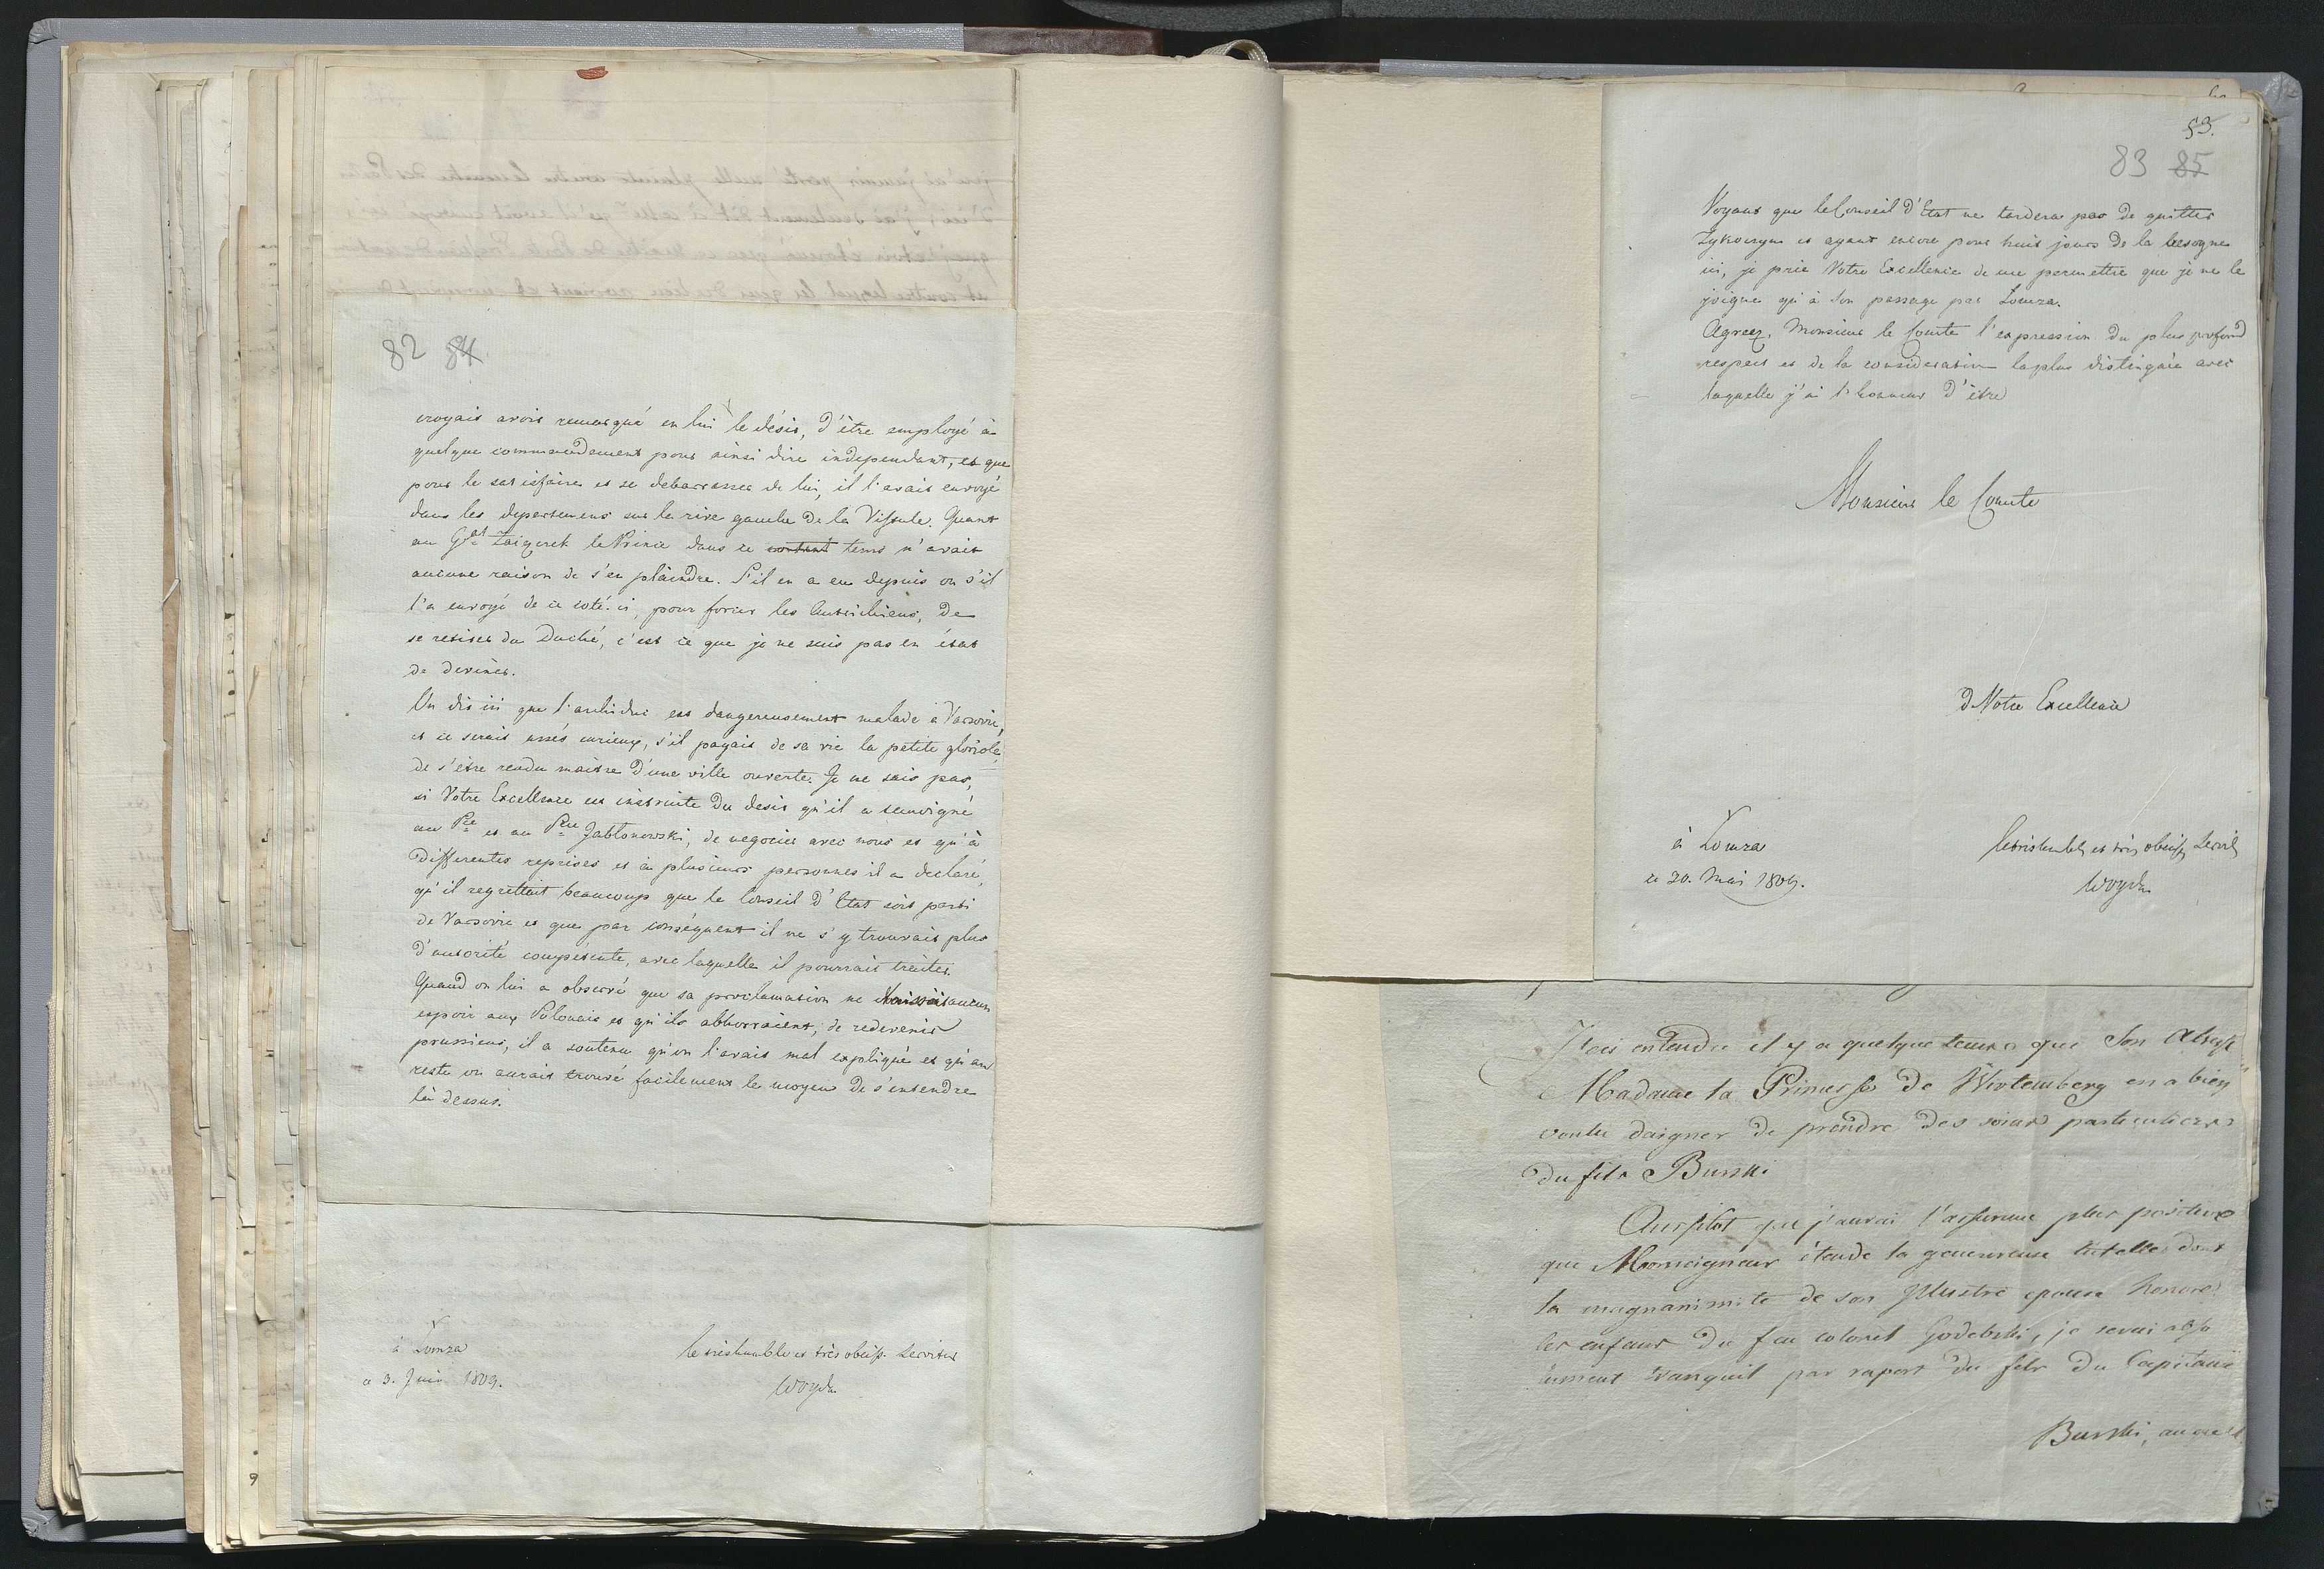 82 84
croyais avoir remarqué en lui le désir, d'être employé à
quelque commandement pour ainsi dire independant, et que
pour le satisfaire et se debarrasser de lui, il l'avait envoyé
dans les departemens sur la rive gauche de la Vissule. Quant
au Gal Zaigcrek le Prince dans ce contant tems n'avait
aucune raison de s'en plaindre. S'il en a eu depuis ou s'il
l'a envoyé de ce coté-ci, pour forcer les Autrichiens, de
se retirer du Duché, c'est ce que je ne suis pas en état
de deviner.
On dit ici que l'archiduc est dangereusement malade à Varsovie,
et ce serait assés curieux, s'il payait de sa vie la petite gloriole,
de s'être rendu maitre d'une ville ouverte. Je ne sais pas,
si Votre Excellence est instruite du desir qu'il a temoigné
au Pce et au Pce Jabłonowski, de negocier avec nous et qu'à
differentes reprises et à plusieurs personnes il a declaré,
qu'il regrettait beaucoup que le Conseil d'Etat soit parti
de Varsovie et que par conséquent il ne s'y trouvait plus
d'autorité compétente, avec laquelle il pourrait traiter.
Quand on lui a observé que sa proclamation ne laissait aucun
espoir aux Polonais et qu'ils abhorraient, de redevenir
prussiens, il a soutenu qu'on l'avait mal expliqué et qu'au
reste on aurait trouvé facilement le moyen de s'entendre
là dessus.
à Lomza
ce 3. Juin 1809.
le très humble et très obéiss. Serviteur
Woyda
53.
83 85
Voyant que le Conseil d'Etat ne tardera pas de quitter
Tykoczyn et ayant encore pour huit jours de la besogne
ici, je prie Votre Excellence de me permettre que je ne le
joigne qu'à son passage par Lomza.
Agreez, Monsieur le Comte l'expression du plus profond
respect et de la consideration la plus distinguée avec
laquelle j'ai l'honneur d'être
Monsieur le Comte
de Votre Excellence
à Lomza
ce 20. Mai 1809.
le très humble et très obeiss Servit
Woyda
J'ai entendu il y a quelque tems que Son Altesse
Madame la Princesse de Wirtemberg en a bien
voulu daigner de prendre des soins particuliers
du fils Burski
Aussitôt que j'aurai l'assurance plus positive
que Monseigneur étende la genereuse tutelle dont
la magnanimité de son Illustre epouse honore
les enfans du feu colonel Godebski, je serai abso
lument tranquil par raport du fils du Capitaine
Burski, auquel